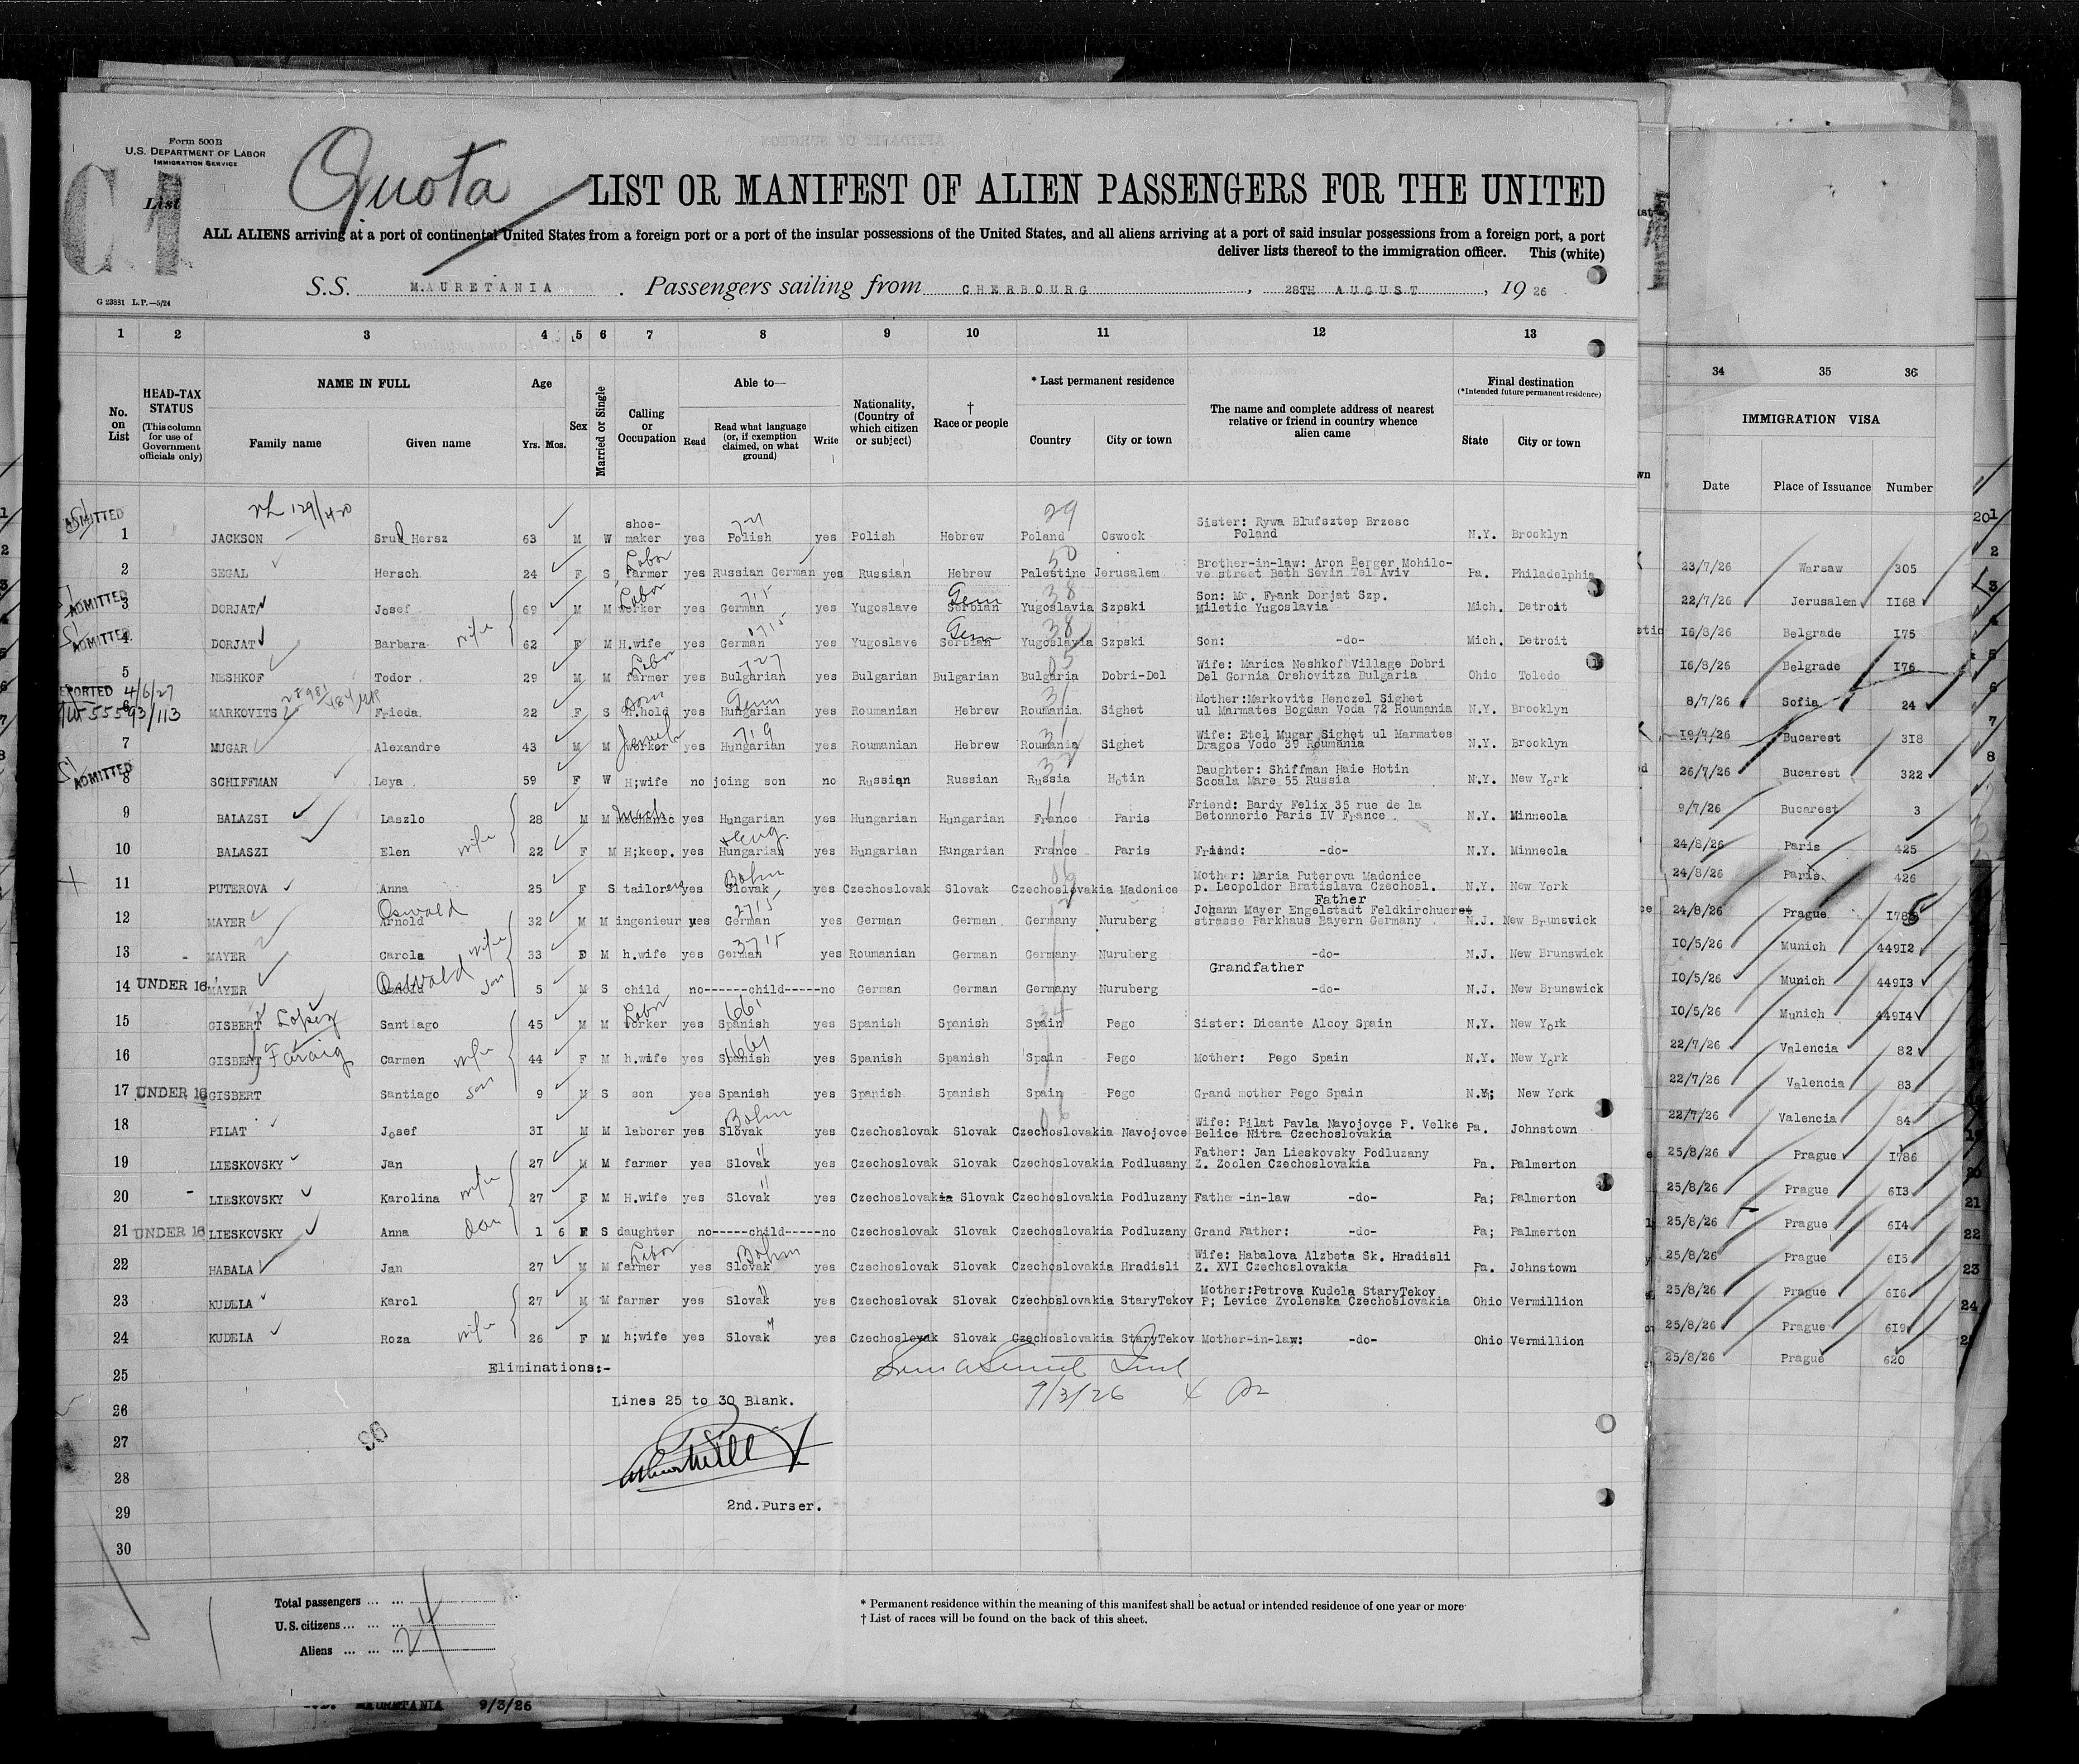 Form 500B
U.S. DEPARTMENT OF LABOR
IMMIGRATION SERVICE
C1
List
Quota
LIST OR MANIFEST OF ALIEN PASSENGERS FOR THE UNITED
ALL ALIENS arriving at a port of continental United States from a foreign port or a port of the insular possessions of the United States, and all aliens arriving at a port of said insular possessions from a foreign port, a port
deliver lists thereof to the immigration officer. This (white)
G 23881 L.P.—5/24
S.S. MAURETANIA. Passengers sailing from CHERBOURG, 28TH AUGUST, 19 26
1 2 3 4 5 6 7 8 9 10 11 12 13 34 35 36
No. on List
HEAD-TAX STATUS (This column for use of Government officials only)
NAME IN FULL
Family name Given name
Age Yrs. Mos.
Sex
Married or Single
Calling or Occupation
Able to—
Read Read what language (or, if exemption claimed, on what ground) Write
Nationality, (Country of which citizen or subject)
† Race or people
* Last permanent residence
Country City or town
The name and complete address of nearest relative or friend in country whence alien came
Final destination (*Intended future permanent residence)
State City or town
IMMIGRATION VISA
Date Place of Issuance Number
ADMITTED 1 JACKSON Srul Hersz 63 M W shoe-maker yes Polish yes Polish Hebrew Poland Oswock Sister: Rywa Blufsztep Brzesc Poland N.Y. Brooklyn 23/7/26 Warsaw 305
2 SEGAL Hersch 24 F S Labor farmer yes Russian German yes Russian Hebrew Palestine Jerusalem Brother-in-law: Aron Berger Mohilo-ve street Beth Sevin Tel Aviv Pa. Philadelphia 22/7/26 Jerusalem 1168
ADMITTED 3 DORJAT Josef 69 M M Labor worker yes German 715 yes Yugoslave Germ Serbian Yugoslavia 38 Szpski Son: Mr. Frank Dorjat Szp. Miletic Yugoslavia Mich. Detroit 16/8/26 Belgrade 175
ADMITTED 4 DORJAT Barbara wife 62 F M H.wife yes German 715 yes Yugoslave Germ Serbian Yugoslavia 38 Szpski Son: -do- Mich. Detroit 16/8/26 Belgrade 176
5 NESHKOF Todor 29 M M Labor farmer yes Bulgarian 727 yes Bulgarian Bulgarian Bulgaria 05 Dobri-Del Wife: Marica Neshkof Village Dobri Del Gornia Orehovitza Bulgaria Ohio Toledo 8/7/26 Sofia 24
4/6/27 55593/113 6 MARKOVITS Frieda 22 F S Dom H.hold yes Germ Hungarian yes Roumanian Hebrew Roumania 31 Sighet Mother:Markovits Henczel Sighet ul Marmates Bogdan Voda 72 Roumania N.Y. Brooklyn 19/7/26 Bucarest 318
7 MUGAR Alexandre 43 M M worker yes Hungarian 719 yes Roumanian Hebrew Roumania 31 Sighet Wife: Etel Mugar Sighet ul Marmates Dragos Vodo 39 Roumania N.Y. Brooklyn 26/7/26 Bucarest 322
ADMITTED 8 SCHIFFMAN Leya 59 F W H;wife no joing son no Russian Russian Russia 32 Hotin Daughter: Shiffman Haie Hotin Scoala Mare 55 Russia N.Y. New York 9/7/26 Bucarest 3
9 BALAZSI Laszlo 28 M M Mech Mechanic yes Hungarian yes Hungarian Hungarian France 11 Paris Friend: Bardy Felix 35 rue de la Betonnerie Paris IV France N.Y. Minneola 24/8/26 Paris 425
10 BALASZI Elen wife 22 F M H;keep. yes Hungarian + Eng. yes Hungarian Hungarian France 11 Paris Friend: -do- N.Y. Minneola 24/8/26 Paris 426
11 PUTEROVA Anna 25 F S tailoress yes Bohm Slovak yes Czechoslovak Slovak Czechoslovakia Madonice Mother: Maria Puterova Madonice p. Leopoldor Bratislava Czechosl. N.Y. New York 24/8/26 Prague 1785
12 MAYER Oswald Arnold 32 M M ingenieur yes German 2715 yes German German Germany 12 Nuruberg Father Johann Mayer Engelstadt Feldkirchuerst strasse Parkhaus Bayern Germany N.J. New Brunsvick 10/5/26 Munich 44912
13 MAYER Carola wife 33 F M h.wife yes German 3715 yes Roumanian German Germany Nuruberg -do- N.J. New Brunswick 10/5/26 Munich 44913
14 UNDER 16 MAYER Oswald Arnold son 5 M S child no------child-----no German German Germany Nuruberg Grandfather -do- N.J. New Brunswick 10/5/26 Munich 44914
15 GISBERT Lopez Santiago 45 M M Labor worker yes Spanish 661 yes Spanish Spanish Spain 34 Pego Sister: Dicante Alcoy Spain N.Y. New York 22/7/26 Valencia 82
16 GISBERT Faraig Carmen wife 44 F M h.wife yes Spanish 1661 yes Spanish Spanish Spain Pego Mother: Pego Spain N.Y. New York 22/7/26 Valencia 83
17 UNDER 16 GISBERT Santiago son 9 M S son yes Spanish yes Spanish Spanish Spain Pego Grand mother Pego Spain N.Y; New York 22/7/26 Valencia 84
18 PILAT Josef 31 M M laborer yes Bohm Slovak yes Czechoslovak Slovak Czechoslovakia 06 Navojovce Wife: Pilat Pavla Navojovce P. Velke Belice Nitra Czechoslovakia Pa. Johnstown 25/8/26 Prague 1786
19 LIESKOVSKY Jan 27 M M farmer yes Slovak " yes Czechoslovak Slovak Czechoslovakia Podlusany Father: Jan Lieskovsky Podluzany Z. Zoolen Czechoslovakia Pa. Palmerton 25/8/26 Prague 613
20 LIESKOVSKY Karolina wife 27 F M H.wife yes Slovak " yes Czechoslovakia Slovak Czechoslovakia Podluzany Fathe -in-law -do- Pa; Palmerton 25/8/26 Prague 614
21 UNDER 16 LIESKOVSKY Anna dau 1 6 F S daughter no------child-----no Czechoslovak Slovak Czechoslovakia Podluzany Grand Father: -do- Pa; Palmerton 25/8/26 Prague 615
22 HABALA Jan 27 M M Labor farmer yes Bohm Slovak yes Czechoslovak Slovak Czechoslovakia Hradisli Wife: Habalova Alzbeta Sk. Hradisli Z. XVI Czechoslovakia Pa. Johnstown 25/8/26 Prague 616
23 KUDELA Karol 27 M M farmer yes Slovak " yes Czechoslovak Slovak Czechoslovakia StaryTekov Mother:Petrova Kudela StaryTekov P; Levice Zvolenska Czechoslovakia Ohio Vermillion 25/8/26 Prague 619
24 KUDELA Roza wife 26 F M h;wife yes Slovak " yes Czechoslovak Slovak Czechoslovakia StaryTekov Mother-in-law: -do- Ohio Vermillion 25/8/26 Prague 620
25 Eliminations:-
26 Lines 25 to 30 Blank. 9/3/26
27
28
29 2nd. Purser.
30
Total passengers ... ...
U.S. citizens ... ... ...
Aliens ... ... ... 24
* Permanent residence within the meaning of this manifest shall be actual or intended residence of one year or more
† List of races will be found on the back of this sheet.
MAURETANIA 9/3/26